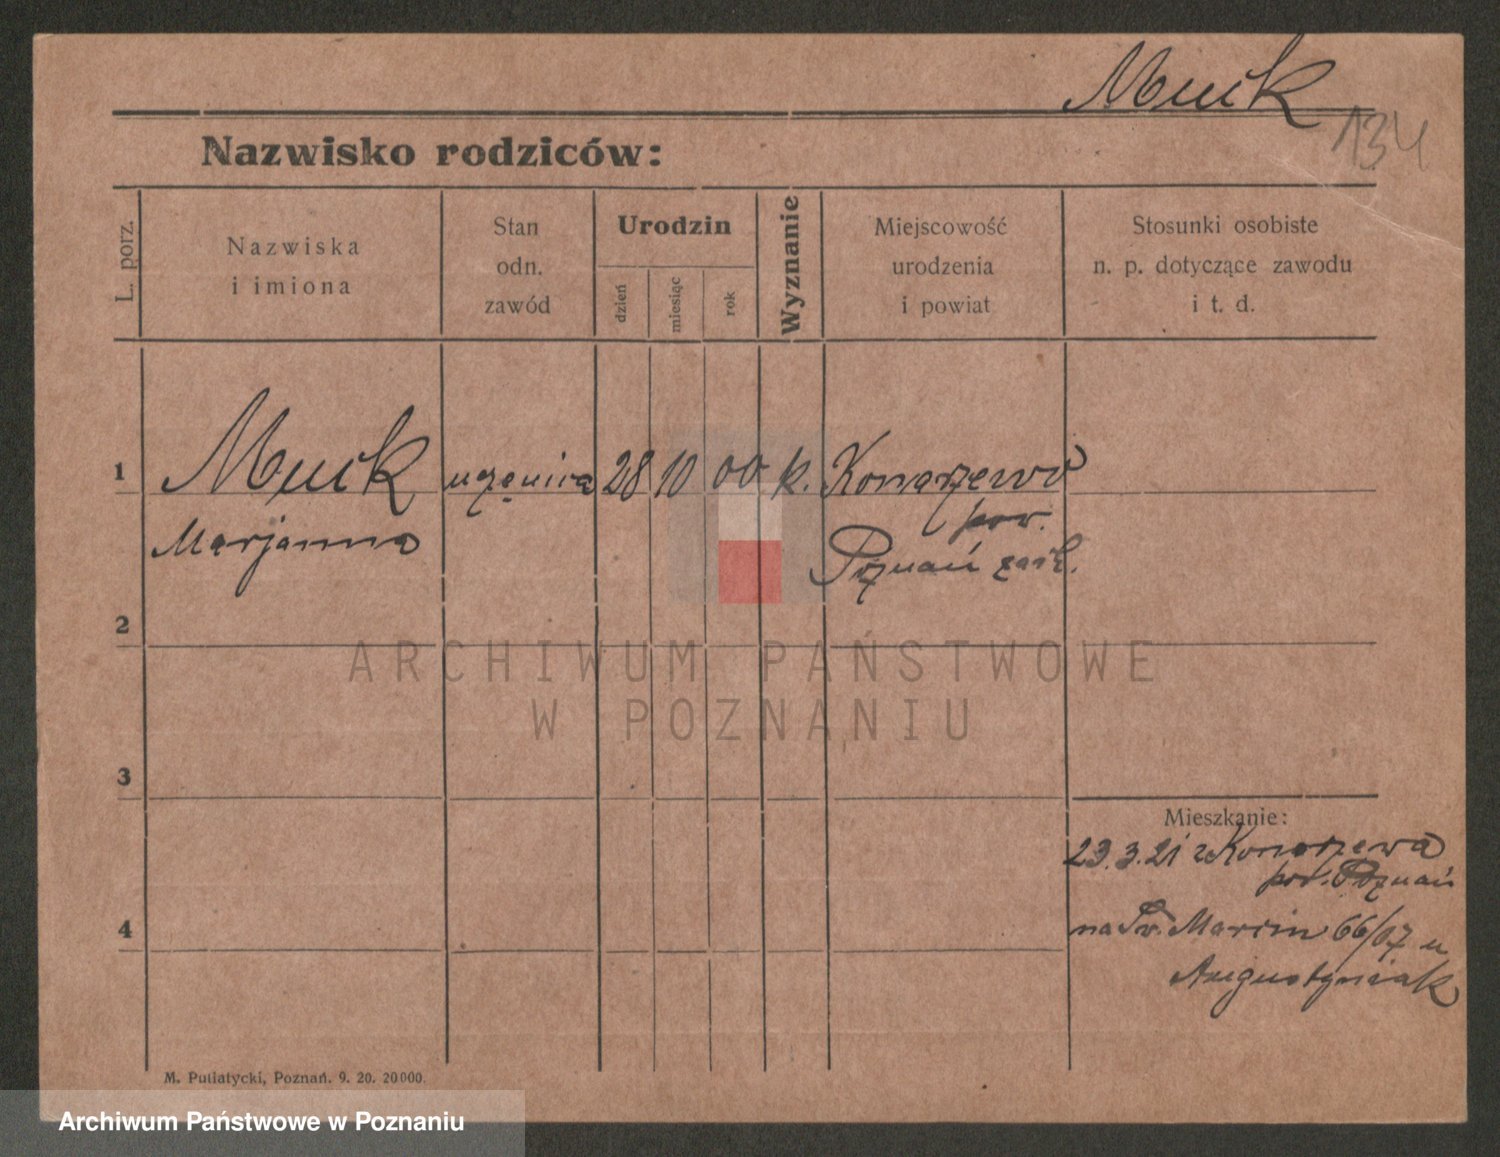 Muik
134
Nazwisko rodziców:
L. porz.
Nazwiska
i imiona
Stan
odn.
zawód
Urodzin
dzień
miesiąc
rok
Wyznanie
Miejscowość
urodzenia
i powiat
Stosunki osobiste
n. p. dotyczące zawodu
i t. d.
1
Muik uczenica 28 10 00 k. Konarzewo
pow.
Marjanna Poznań zach.
2
ARCHIWUM PAŃSTWOWE
W POZNANIU
3
Mieszkanie:
23.3.21 z Konarzewa
pow. Poznań
4
na Św. Marcin 66/67 u
Augustyniak
M. Putiatycki, Poznań. 9. 20. 20000.
Archiwum Państwowe w Poznaniu